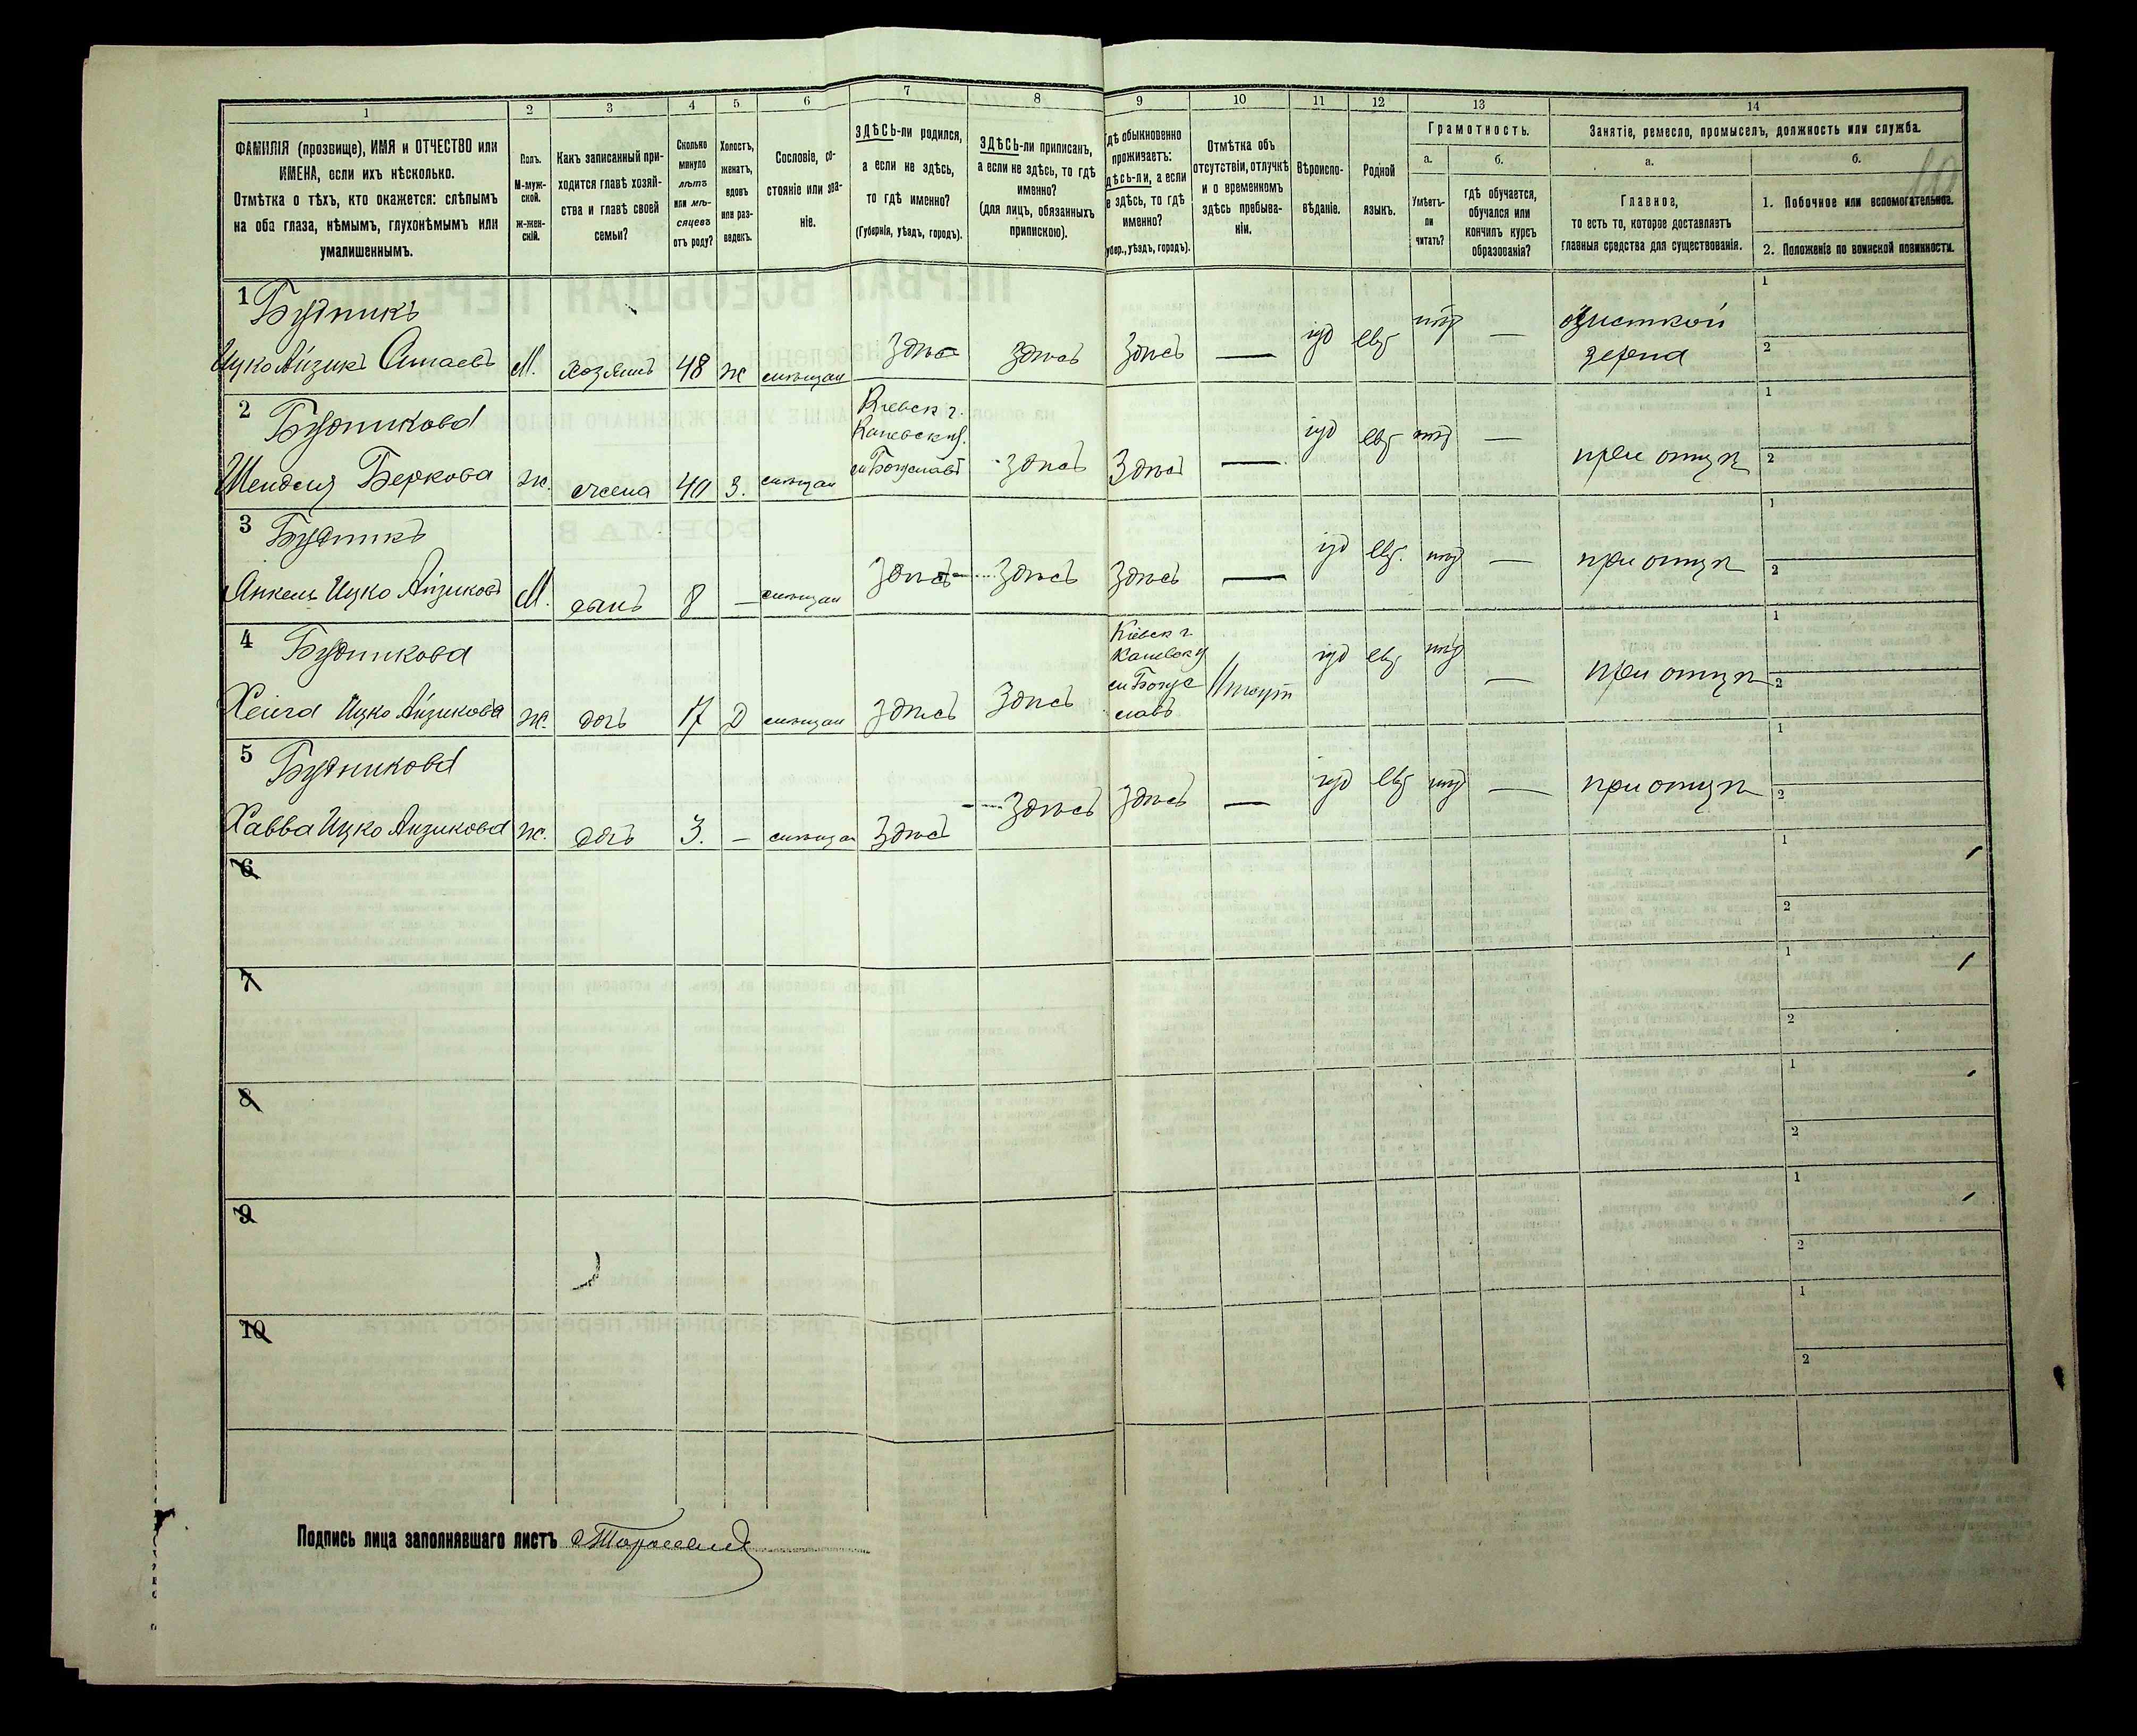 1
2
3
4
5
6
7
8
9
10
11
12
13
14
ФАМИЛІЯ (прозвище), ИМЯ и ОТЧЕСТВО или
ИМЕНА, если ихъ нѣсколько.
Отмѣтка о тѣхъ, кто окажется: слѣпымъ
на оба глаза, нѣмымъ, глухонѣмымъ или
умалишеннымъ.
Полъ.
М-муж-
ской.
Ж-жен-
скій.
Какъ записанный при-
ходится главѣ хозяй-
ства и главѣ своей
семьи?
Сколько
минуло
лѣтъ
или мѣ-
сяцевъ
отъ роду?
Холостъ,
женатъ,
вдовъ
или раз-
веденъ.
Сословіе, со-
стояніе или зва-
ніе.
ЗДѢСЬ-ли родился,
а если не здѣсь,
то гдѣ именно?
(Губернія, уѣздъ, городъ).
ЗДѢСЬ-ли приписанъ,
а если не здѣсь, то гдѣ
именно?
(для лицъ, обязанныхъ
припискою).
Гдѣ обыкновенно
проживаетъ:
здѣсь-ли, а если
не здѣсь, то гдѣ
именно?
губер., уѣздъ, городъ).
Отмѣтка объ
отсутствіи, отлучкѣ
и о временномъ
здѣсь пребыва-
ніи.
Вѣроиспо-
вѣданіе.
Родной
языкъ.
Грамотность.
а.
б.
Умѣетъ-
ли
читать?
гдѣ обучается,
обучался или
кончилъ курсъ
образованія?
Занятіе, ремесло, промыселъ, должность или служба.
а.
б.
10
Главное,
то есть то, которое доставляетъ
главныя средства для существованія.
1. Побочное или вспомогательное.
2. Положеніе по воинской повинности.
1 Будникъ
Ицко Айзикъ М. хозяинъ 48 ж здѣсь здѣсь здѣсь — іуд евр нѣт — зерна
1
2
2 Будникова
Шендля Беркова ж. жена 40 З. Кіевск г.
Каневск у.
м Богуславъ здѣсь здѣсь — іуд евр нѣт — при отцѣ
1
2
3 Будникъ
Янкель Ицко Айзиковъ М. сынъ 8 — здѣсь здѣсь здѣсь — іуд евр. нѣт — при отцѣ
1
2
4 Будникова
Ицко Айзикова ж. дочь 17 Д здѣсь здѣсь Кіевск г.
Каневск у
м Богус
лавъ іуд евр нѣт — при отцѣ
1
2
5 Будникова
Хавва Ицко Айзикова ж. дочь 3. — здѣсь здѣсь здѣсь — іуд евр нѣт — при отцѣ
1
2
6
1
2
7
1
2
8
1
2
9
1
2
10
1
2
Подпись лица заполнявшаго листъ